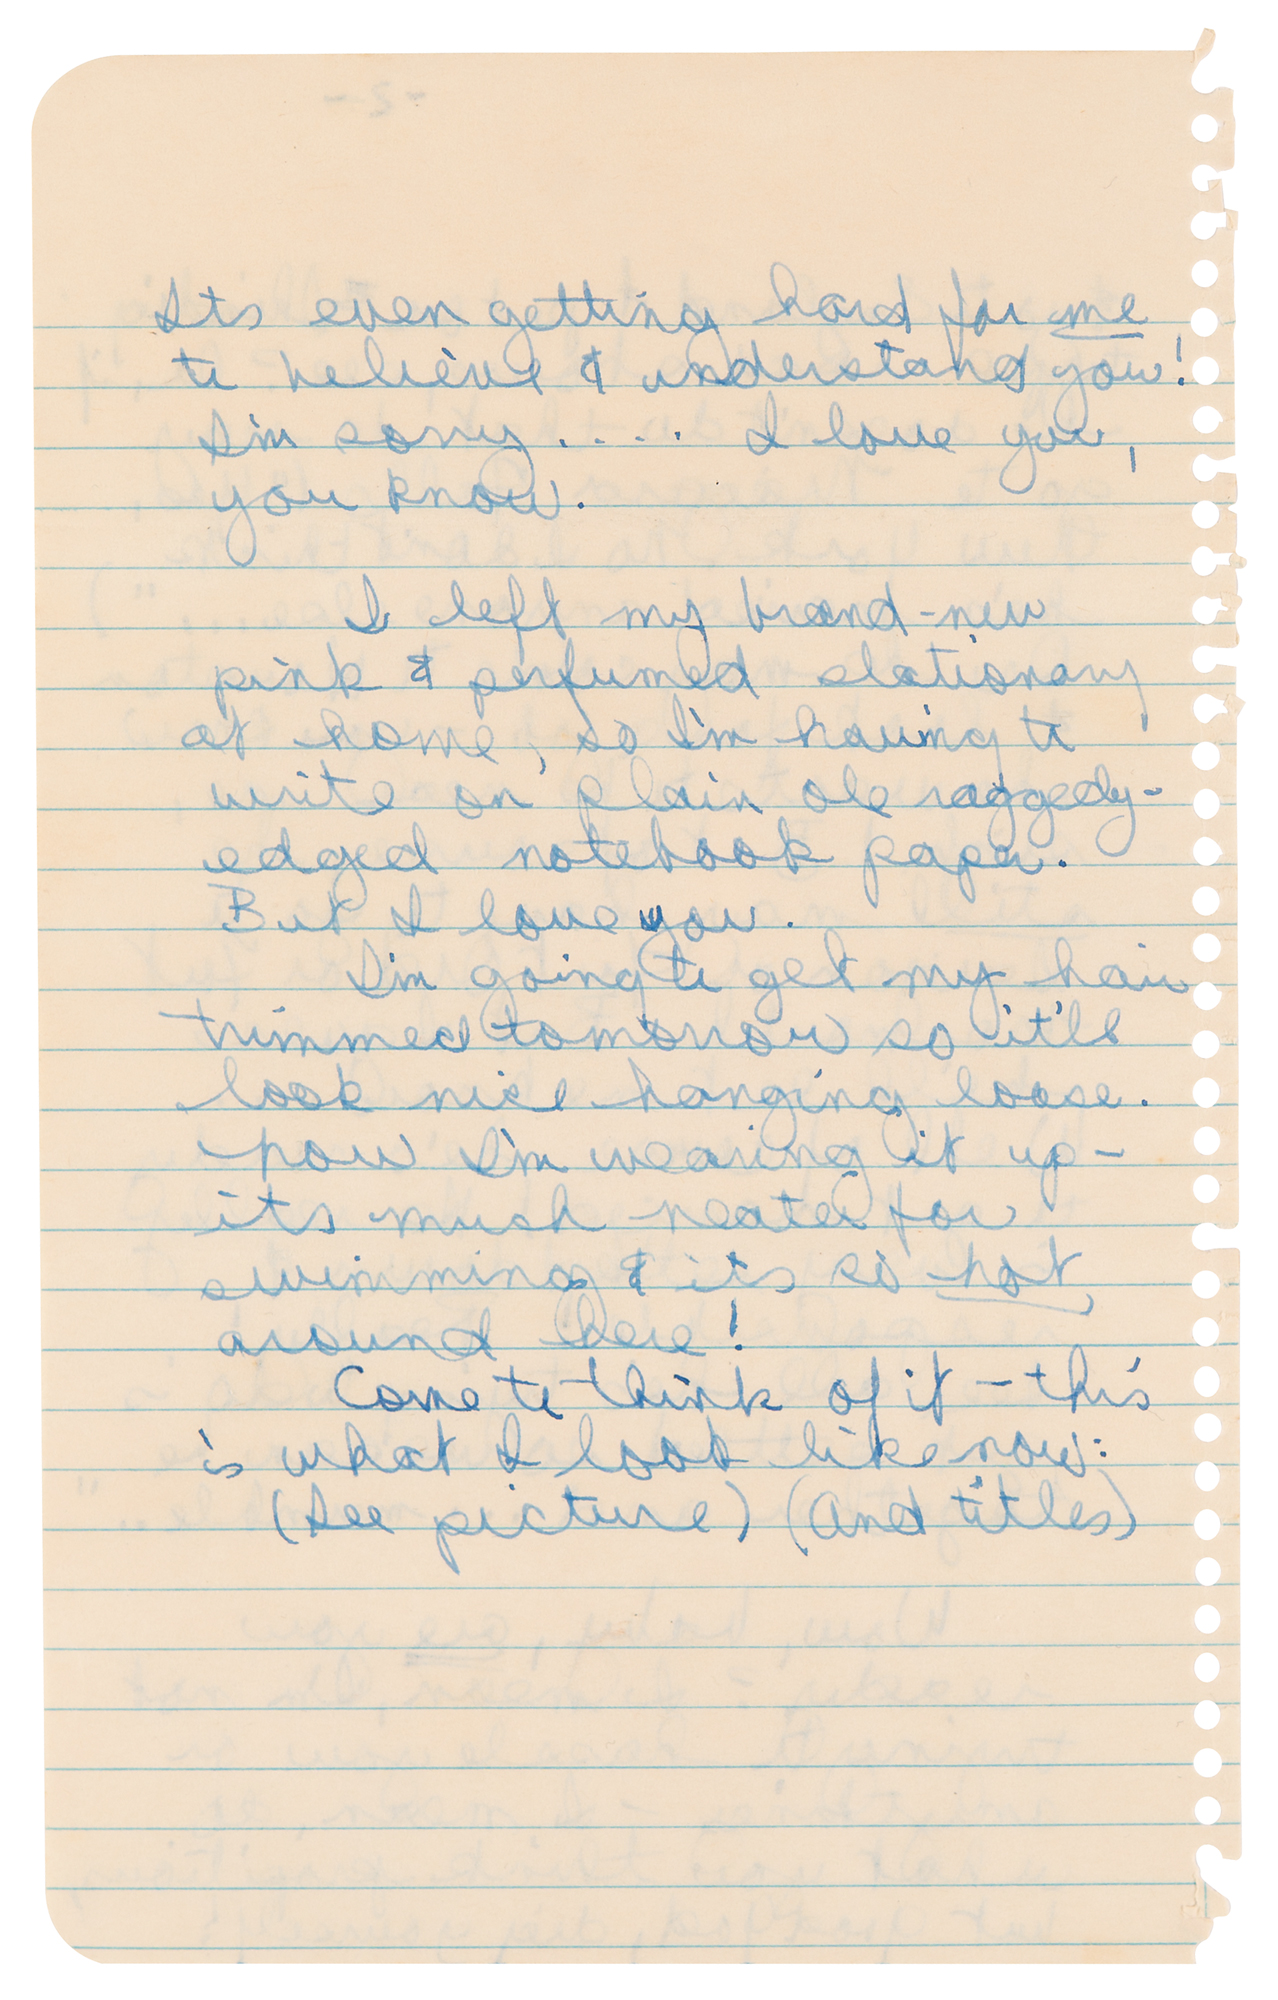 Its even getting hard for me
to believe & understand you!
I'm sorry.... I love you,
you know.
I left my brand-new
pink & perfumed stationary
at home, so I'm having to
write on plain ole raggedy-
edged notebook paper.
But I love you.
I'm going to get my hair
trimmed tomorrow so it'll
look nice hanging loose.
Now I'm wearing it up-
its much neater for
swimming & its so hot
around here!
Come to think of it - this
is what I look like now:
(See picture) (And titles)